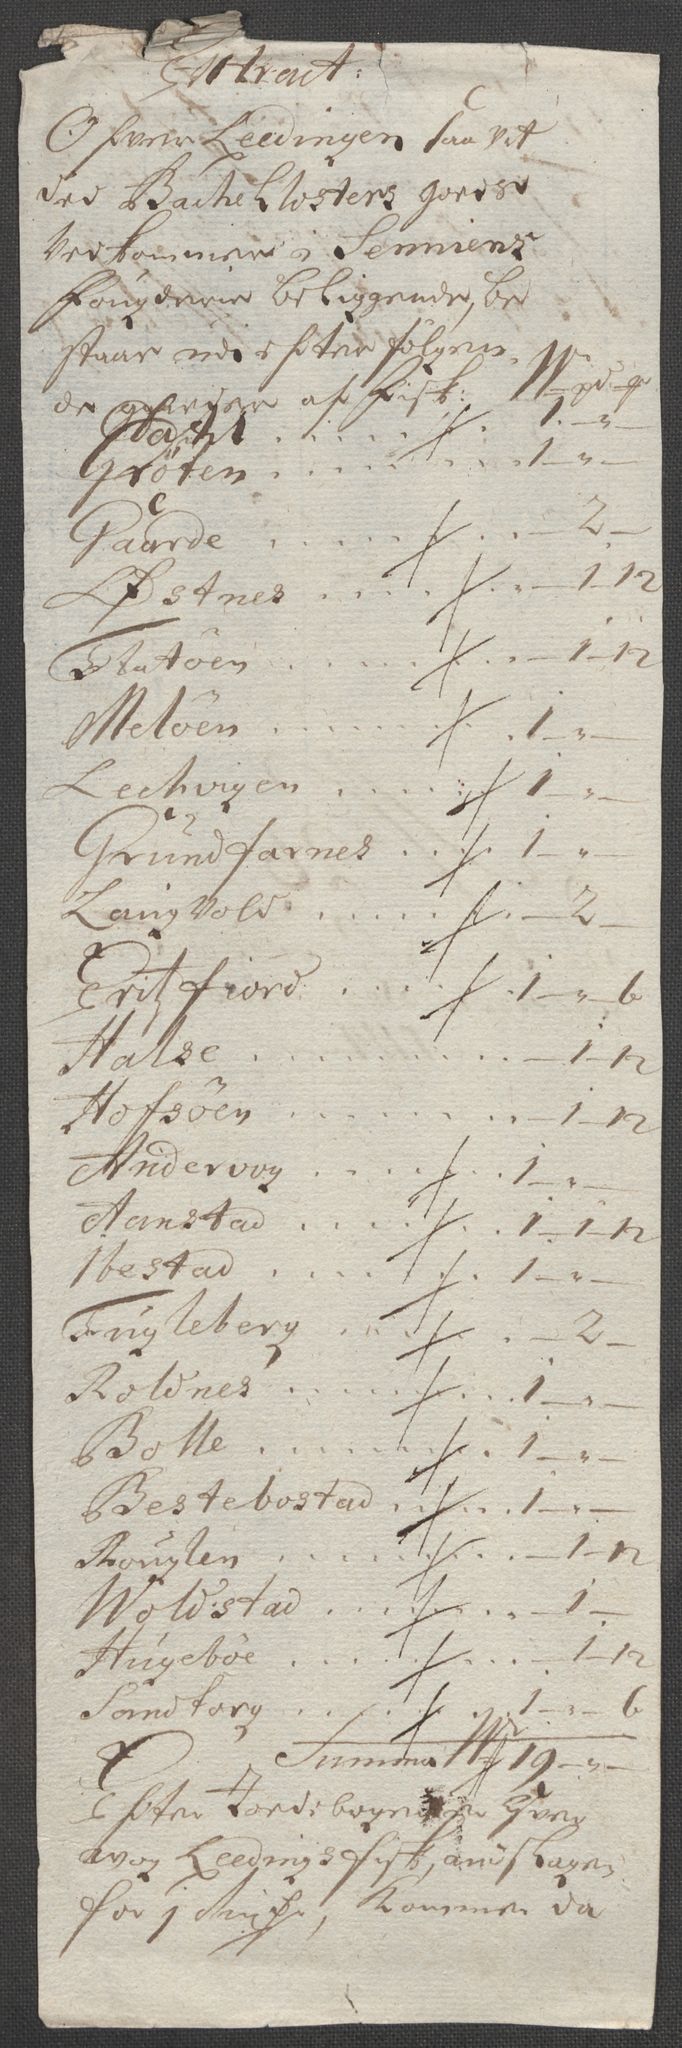 Extract:
Ofver Leedingen saa vit
ded Bache Closters goeds
Vedkommer i Senniens
Fougderie beliggende, be
staar udi efter følgen
de gaarder af fisk: W pd
1 "
Gröten 1 "
Gaarde 2
Løstnes 1 12
Flatöen 1 12
Melöen 1 "
Lechvigen 1 "
Grundfarnes 1 "
Langvold 2
Eritzfiord 1 " 6
Halse 1 12
Hofsöen 1 12
Andervog 1 "
Aanstad 1 1 12
Ibestad 1 "
Fugleberg 2
Roldnes 1 "
Bolle 1 "
Bestebostad 1 "
Rouglen 1 12
Woldstad 1
Hugeböe 1 12
Sandtorg 1 " 6
Summa W 19 "
Efter Jordebogen er hver
wog Leedings fisk, anslagen
for 1 , kommer da